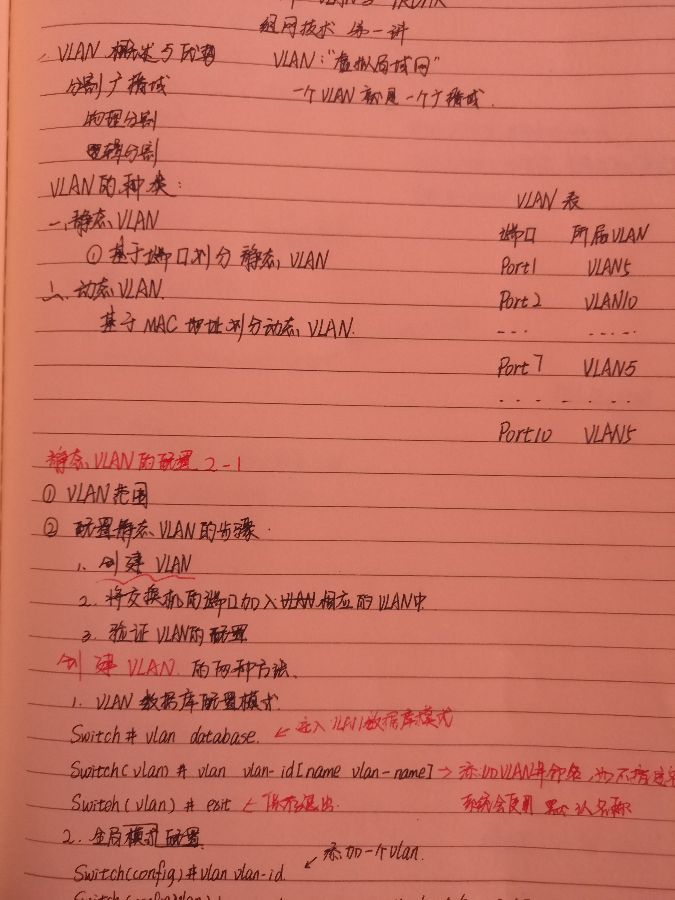 VLAN & TRUNK
组网技术 第一讲
VLAN 概述与优势 VLAN："虚拟局域网"
分割广播域 一个VLAN就是一个广播域.
物理分割
逻辑分割
VLAN的种类：
一、静态VLAN
① 基于端口划分静态VLAN
二、动态VLAN.
基于MAC地址划分动态VLAN.
VLAN 表
端口 所属VLAN
Port1 VLAN5
Port2 VLAN10
.... ....
Port7 VLAN5
.... ....
Port10 VLAN5
静态VLAN的配置 2-1
① VLAN范围
② 配置静态VLAN的步骤.
1. 创建 VLAN
2. 将交换机的端口加入VLAN相应的VLAN中
3. 验证VLAN的配置
创建VLAN.的两种方法.
1. VLAN 数据库配置模式.
Switch # vlan database. ← 进入VLAN数据库模式
Switch(vlan) # vlan vlan-id [name vlan-name] → 添加VLAN并命名,
Switch(vlan) # exit ← 保存退出. 系统会使用默认名称
2. 全局模式配置
Switch(config)#vlan vlan-id. ↙ 添加一个vlan.